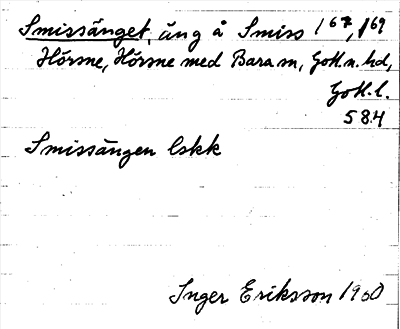 Smissänget, äng å Smiss 1⁶⁷, 1⁶⁹
Hörsne, Hörsne med Bara sn, Gotl. n. hd,
Gotl. l.
584
Smissängen lskk
Inger Eriksson 1960